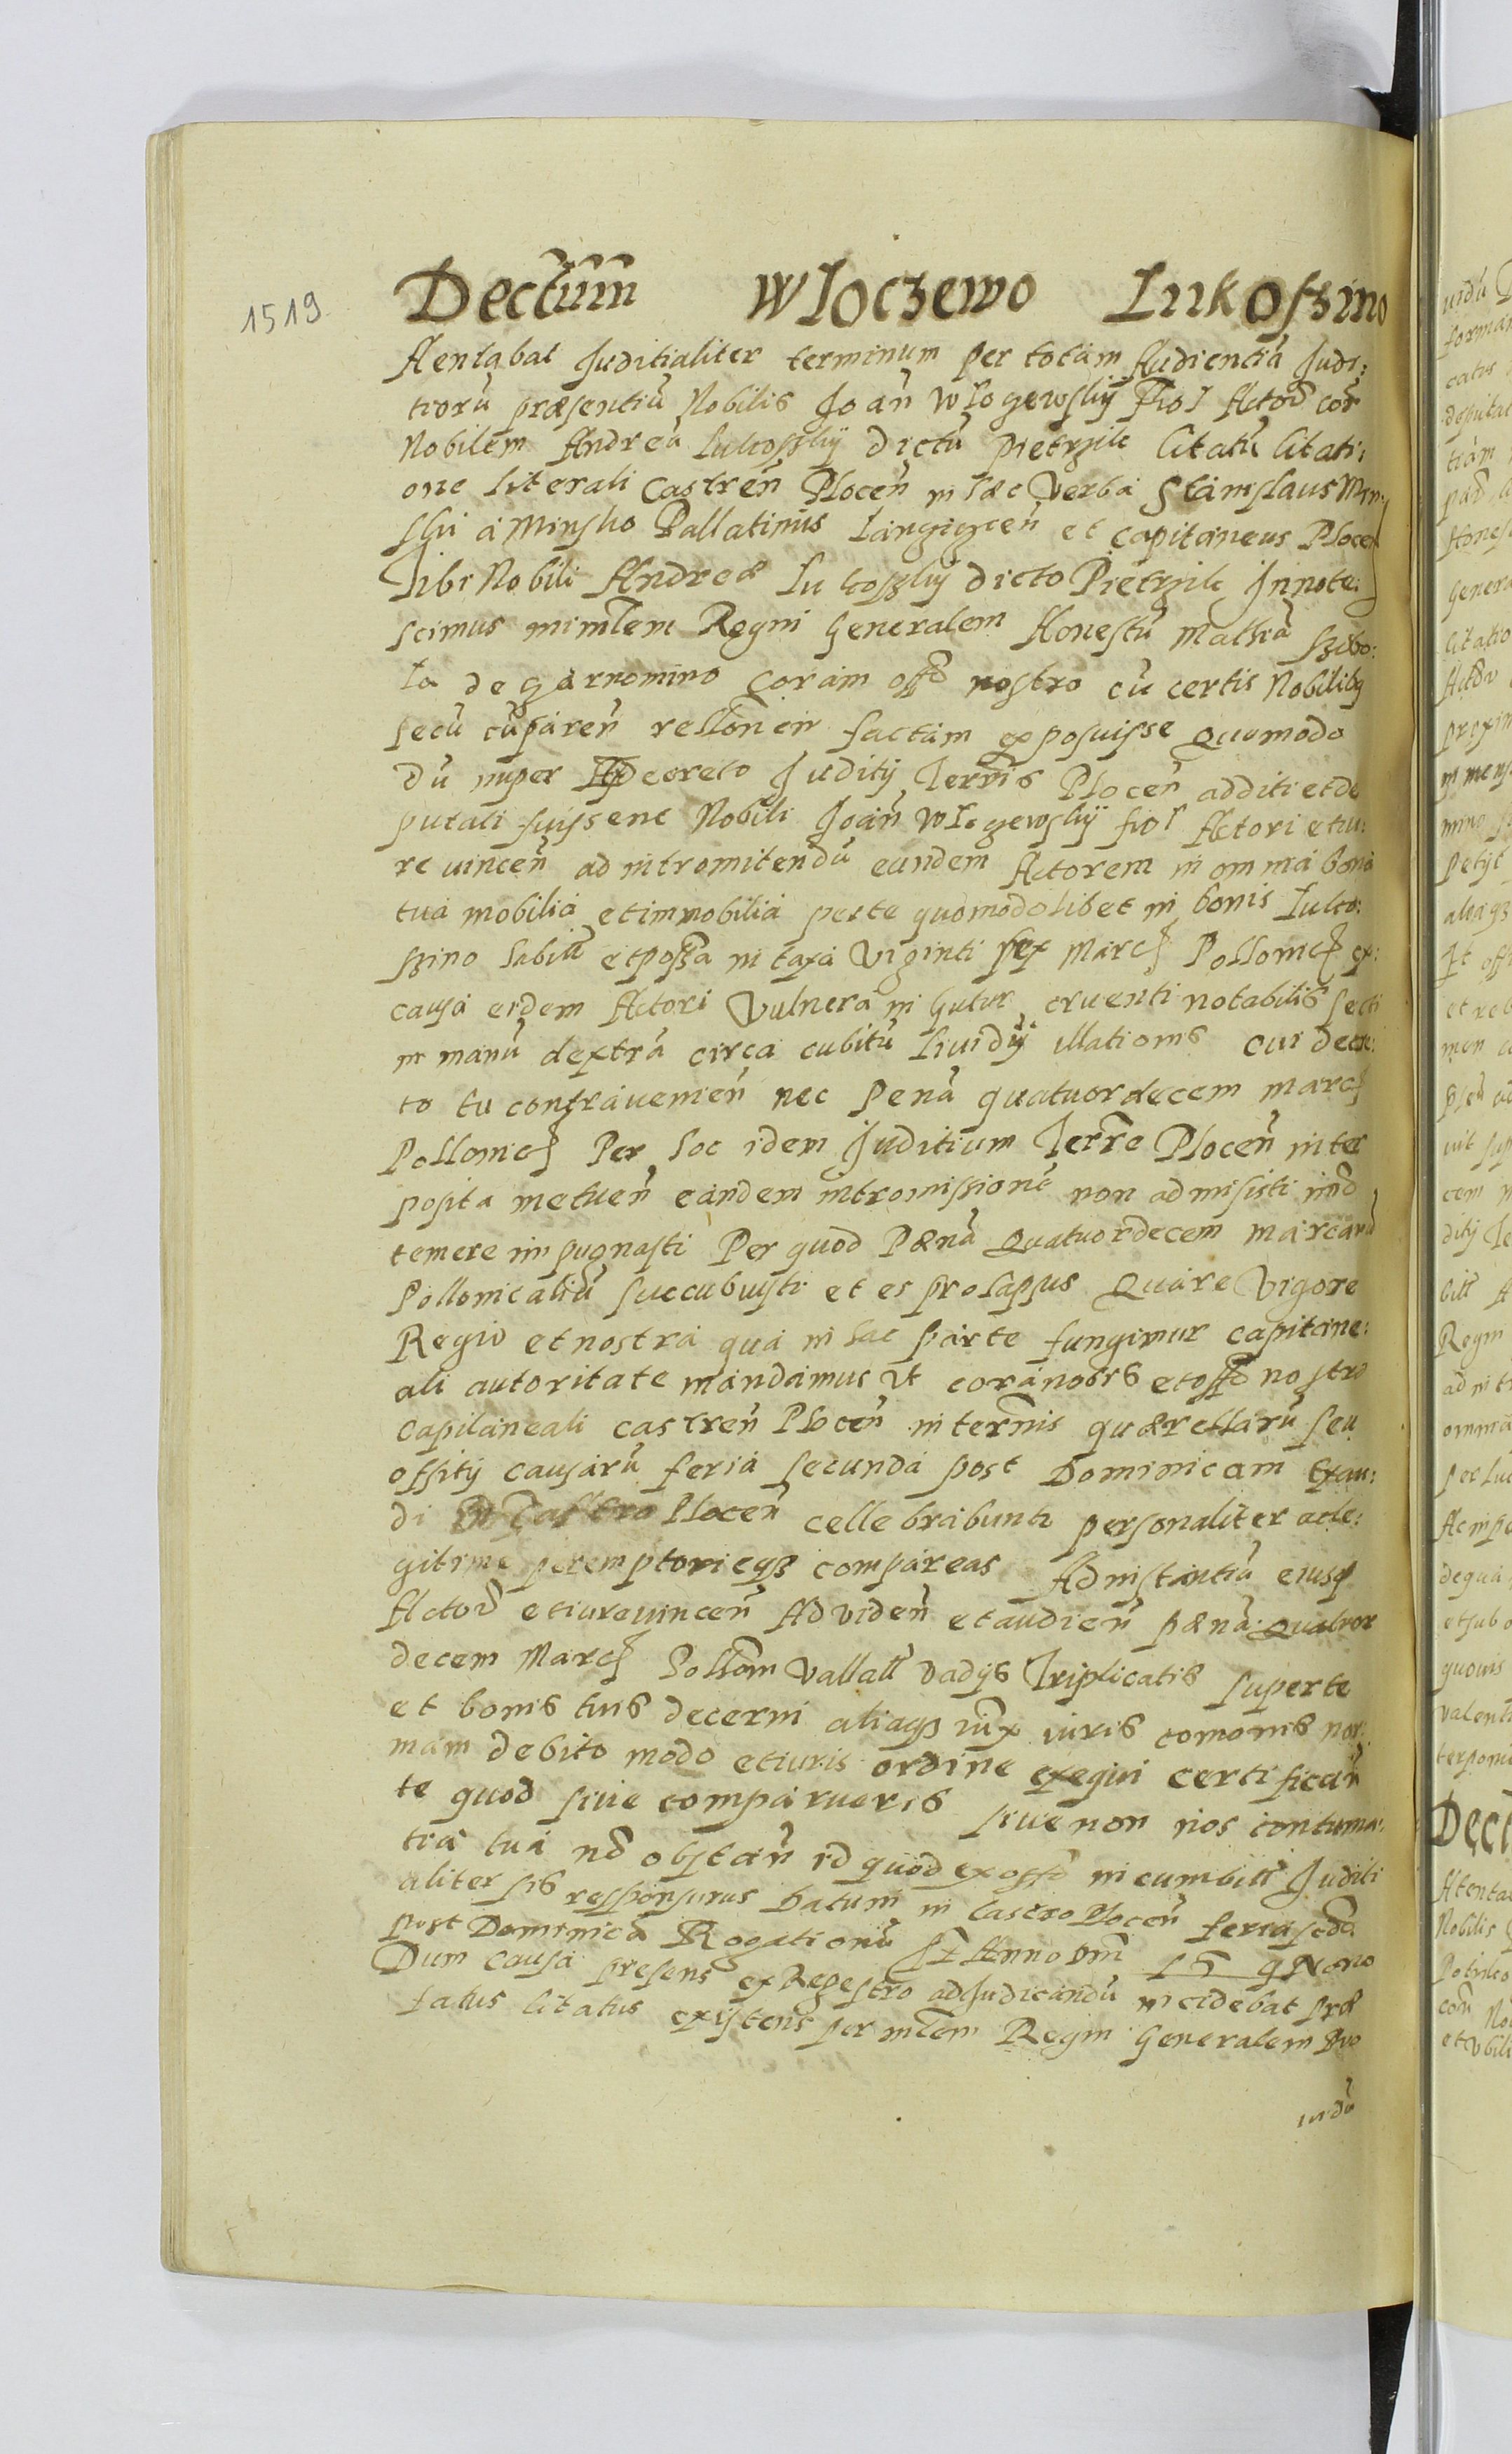 1519
Dectum Wloczewo Lukoszino
Aentabat Juditialiter terminum per totam Audientiā Judi:
tiorū præsentiū Nobilis Joan̄ Wlogewskÿ Fiol Actor con
Nobilem Andreā Lukosskÿ dictū pietrzik Citatū Citati:
one literali Castren̄ Plocen̄ in hæc Verba Stanislaus Min
ski a Minsko Pallatinus Lancizicen̄ et capitaneus Plocen
Tibi Nobili Andreæ Lukosskÿ dicto Pietrzik Innote:
scimus minlem Regni Generalem Honestū Mathiā
la de Garnomino Coram offo nostro cū certis Nobilibq
secū cūparen̄ rellonem factam exposuisse Quomodo
dū nuper decreto Juditij Terris Plocen̄ additi et de
putati fuissent Nobili Joan̄ Wlogewskÿ fiol Actori etiu:
re vincen̄ ad intromitendū eundem Actorem in omnia bona
tua mobilia et immobilia perte quomodolibet in bonis Luko:
szino habitt et possa in taxa Viginti sex Marcf Pollonicf ex:
causa eidem Actori Vulnera in Gutur cruenti notabilis secti
in manū dextrā circa cubitū Liuidÿ illationis cui decre:
to tu contravenien̄ nec Penā quatuordecem marcf
Pollonicf Per hoc idem Juditium Terre Plocen̄ inter
posita metuen̄ eandem intromissionē non admisisti imo
temere impugnasti Per quod Pænā Quatuordecem marcarū
Pollonicaliū succubuisti et es prolapsus Quare Vigore
Regio et nostra qua in hac parte fungimur capitane:
ali autoritate mandamus Vt coranobis et offo nostro
Capitaneali castren̄ Plocen̄ in ternis quærellarū seu
offitij causarū feria secunda post Dominicam Exau:
di In Castro Plocen̄ cellebrabunti personaliter acle:
gitime peremptorieqз compareas Adnistantiā eiusq
Actor et iurevincen̄ Ad viden̄ et audien̄ pænā Quatuor
decem Marcf Pollon Vallatt Vadÿs Triplicatis superte
et bonis tuis decerni aliaqз iux iuris comonis nor:
mam debito modo etiuris ordine exequi certifican̄
te quod siue comparueris siue non nos contuma:
tia tua no obstan̄ id quod ex offo incumbitt Juditi
aliter sis responsurus Datum in Castro Plocen̄ feria scda
post Dominicā Rogationū Anno Dni 15 9 Nono
Dum Causa presens ex Regestro adJudicandū incidebat præ
fatus Citatus existens per mlem Regni Generalem Pro
uidū